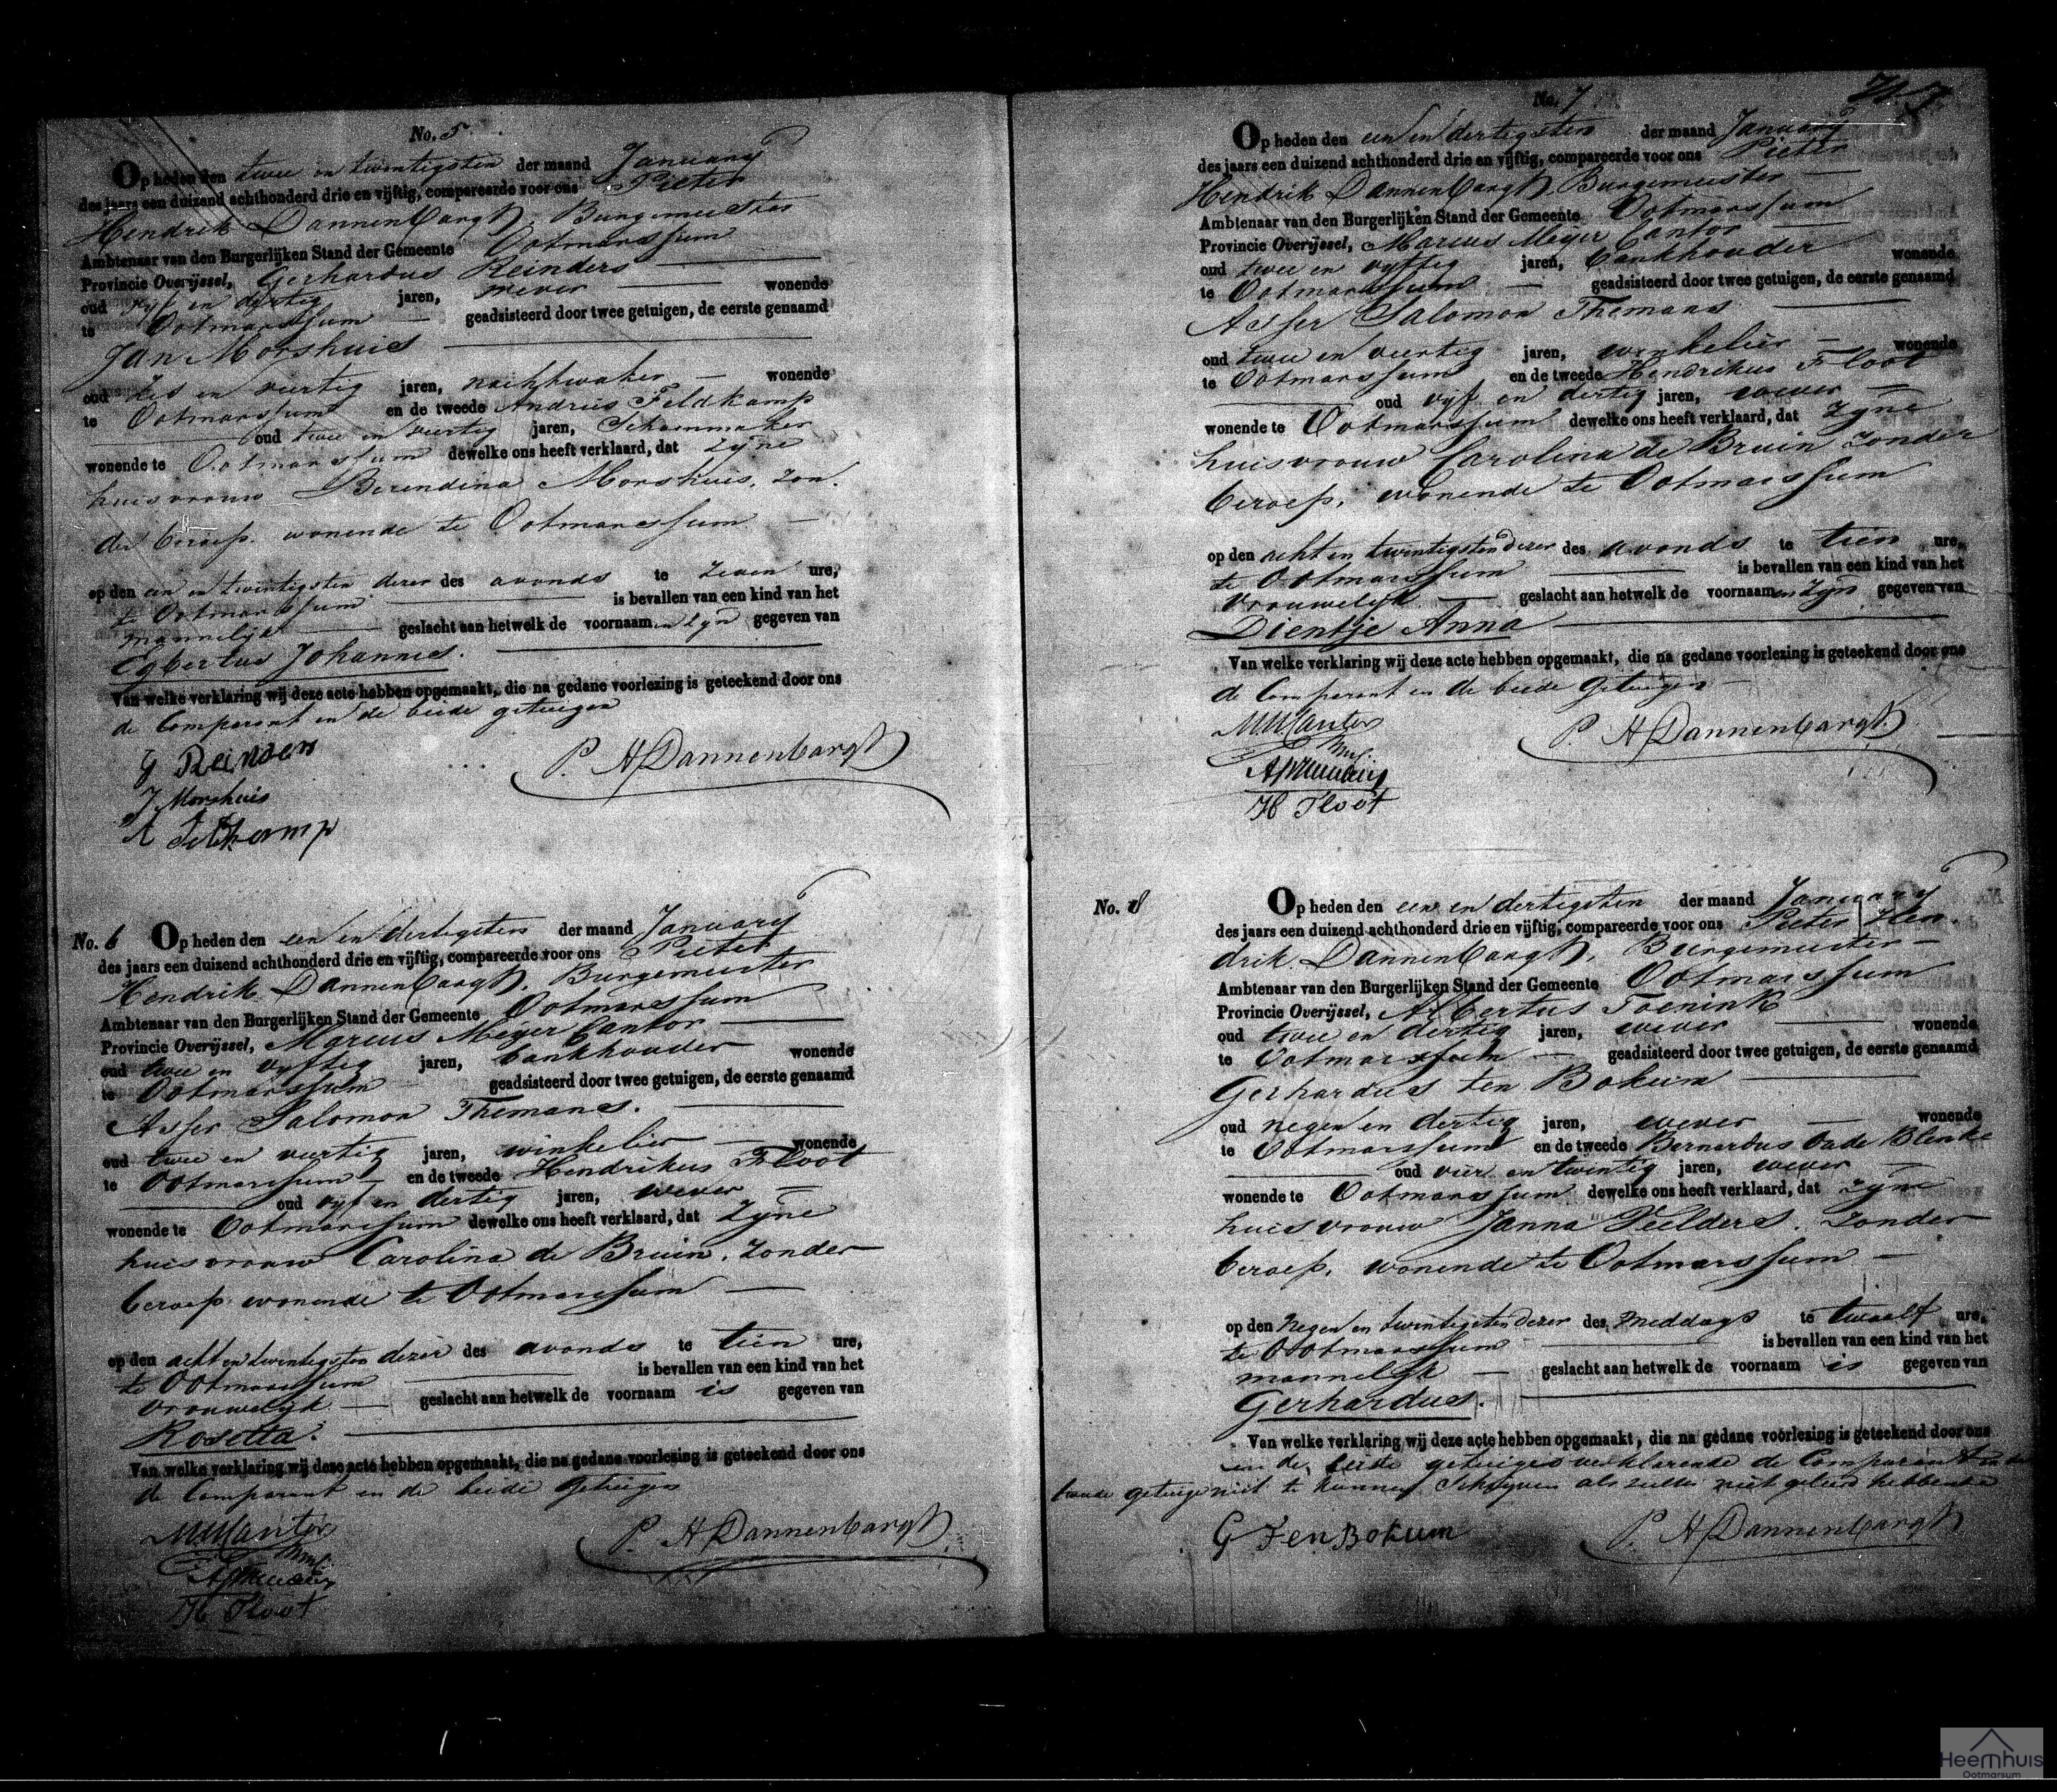 No. 5
Op heden den twee en twintigsten der maand January
des jaars een duizend achthonderd drie en vijftig, compareerde voor ons Pieter
Hendrik Dannenbargh, Burgemeester
Ambtenaar van den Burgerlijken Stand der Gemeente Ootmarssum
Provincie Overijssel, Gerhardus Reinders
oud vyf en dertig jaren, wever wonende
te Ootmarssum geadsisteerd door twee getuigen, de eerste genaamd
Jan Morshuis
oud zes en veertig jaren, nachtwaker wonende
te Ootmarssum en de tweede Andries Feldkamp
oud twee en veertig jaren, Schoenmaker
wonende te Ootmarssum dewelke ons heeft verklaard, dat zyne
huisvrouw Berendina Morshuis, zon-
der beroep, wonende te Ootmarssum
op den een en twintigsten dezer des avonds te zeven ure,
te Ootmarssum is bevallen van een kind van het
mannelijk geslacht aan hetwelk de voornaamen zyn gegeven van
Egbertus Johannes.
Van welke verklaring wij deze acte hebben opgemaakt, die na gedane voorlezing is geteekend door ons
de Comparant en de beide getuigen
G Reinders
P. H Dannenbargh
J Morshuis
A Feldkamp
No. 6 Op heden den een en dertigsten der maand January
des jaars een duizend achthonderd drie en vijftig, compareerde voor ons Pieter
Hendrik Dannenbargh, Burgemeester
Ambtenaar van den Burgerlijken Stand der Gemeente Ootmarssum
Provincie Overijssel, Marcus Meyer Cantor
oud twee en vyftig jaren, bankhouder wonende
te Ootmarssum geadsisteerd door twee getuigen, de eerste genaamd
Asser Salomon Themans.
oud twee en veertig jaren, winkelier wonende
te Ootmarssum en de tweede Hendrikus Floot
oud vyf en dertig jaren, wever
wonende te Ootmarssum dewelke ons heeft verklaard, dat zyne
huisvrouw Carolina de Bruin, zonder
beroep wonende te Ootmarssum
op den acht en twintigsten dezer des avonds te tien ure,
te Ootmarssum is bevallen van een kind van het
vrouwelijk geslacht aan hetwelk de voornaam is gegeven van
Rosetta.
Van welke verklaring wij deze acte hebben opgemaakt, die na gedane voorlezing is geteekend door ons
de Comparant en de beide getuigen
MMCantor
P. H Dannenbargh
H Floot
No. 7
Op heden den een en dertigsten der maand January
des jaars een duizend achthonderd drie en vijftig, compareerde voor ons Pieter
Hendrik Dannenbargh, Burgemeester
Ambtenaar van den Burgerlijken Stand der Gemeente Ootmarssum
Provincie Overijssel, Marcus Meijer Cantor
oud twee en vyftig jaren, bankhouder wonende
te Ootmarssum geadsisteerd door twee getuigen, de eerste genaamd
Asser Salomon Themans
oud twee en veertig jaren, winkelier wonende
te Ootmarssum en de tweede Hendrikus Floot
oud vyf en dertig jaren, wever
wonende te Ootmarssum dewelke ons heeft verklaard, dat zyne
huisvrouw Carolina de Bruin zonder
beroep, wonende te Ootmarssum
op den acht en twintigsten dezer des avonds te tien ure,
te Ootmarssum is bevallen van een kind van het
vrouwelijk geslacht aan hetwelk de voornaamen zyn gegeven van
Dientje Anna
Van welke verklaring wij deze acte hebben opgemaakt, die na gedane voorlezing is geteekend door ons
de Comparant en de beide getuigen
MMCantor
P. H Dannenbargh
H Floot
No. 8 Op heden den een en dertigsten der maand January
des jaars een duizend achthonderd drie en vijftig, compareerde voor ons Pieter Hen-
drik Dannenbargh, Burgemeester
Ambtenaar van den Burgerlijken Stand der Gemeente Ootmarssum
Provincie Overijssel, Albertus Toenink
oud twee en dertig jaren, wever wonende
te Ootmarssum geadsisteerd door twee getuigen, de eerste genaamd
Gerhardus ten Bokum
oud negen en dertig jaren, wever wonende
te Ootmarssum en de tweede Bernardus Oude Blenke
oud vier en twintig jaren, wever
wonende te Ootmarssum dewelke ons heeft verklaard, dat zyne
huisvrouw Janna Velders, zonder
beroep, wonende te Ootmarssum
op den negen en twintigsten dezer des middags te twaalf ure,
te Ootmarssum is bevallen van een kind van het
mannelyk geslacht aan hetwelk de voornaam is gegeven van
Gerhardus.
Van welke verklaring wij deze acte hebben opgemaakt, die na gedane voorlezing is geteekend door ons
en de eerste getuige verklarende de Comparant en de
tweede getuige niet te kunnen schryven als zulks niet geleerd hebbende
G Ten Bokum
P. H Dannenbargh
Heemhuis
Ootmarsum